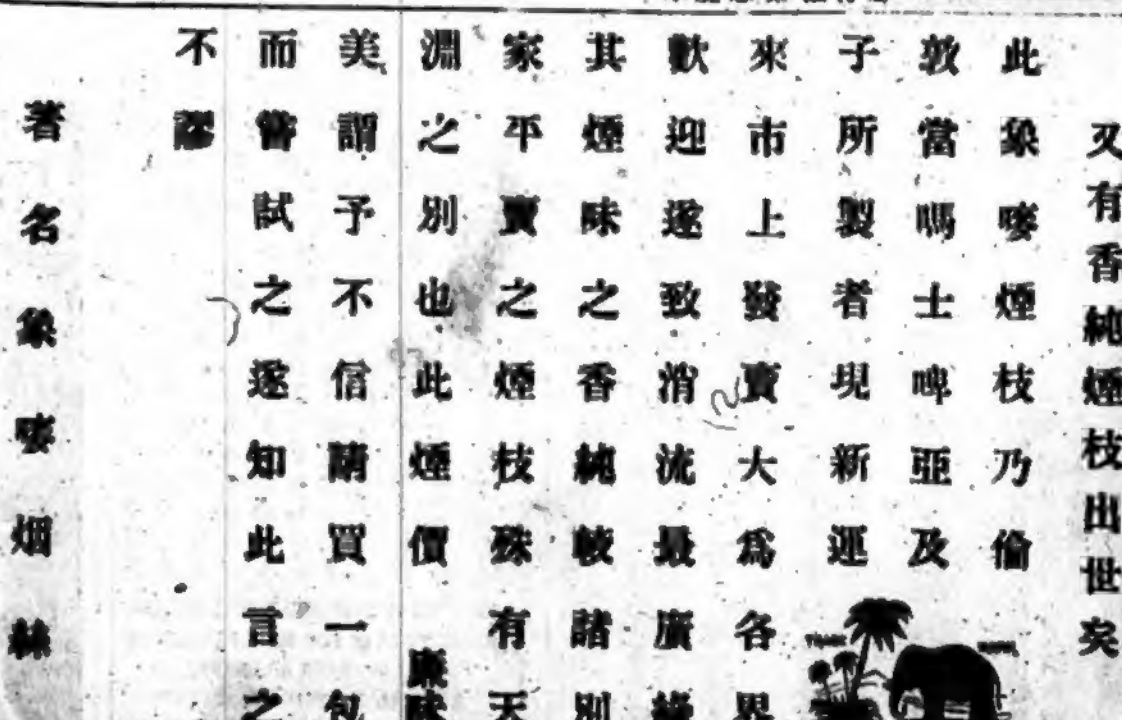 又有香純煙枝出世矣
此象嘜煙枝乃倫
敦當嗎士啤亞及
子所製者現新運
來市上發賣大爲各界
歡迎遂致消流最廣緣
其煙味之香純較諸別
家平賣之煙枝殊有天
淵之別也此煙價廉味
美謂予不信請買一包
而嘗試之遂知此言之
不謬
著名象嘜烟絲
TRADE